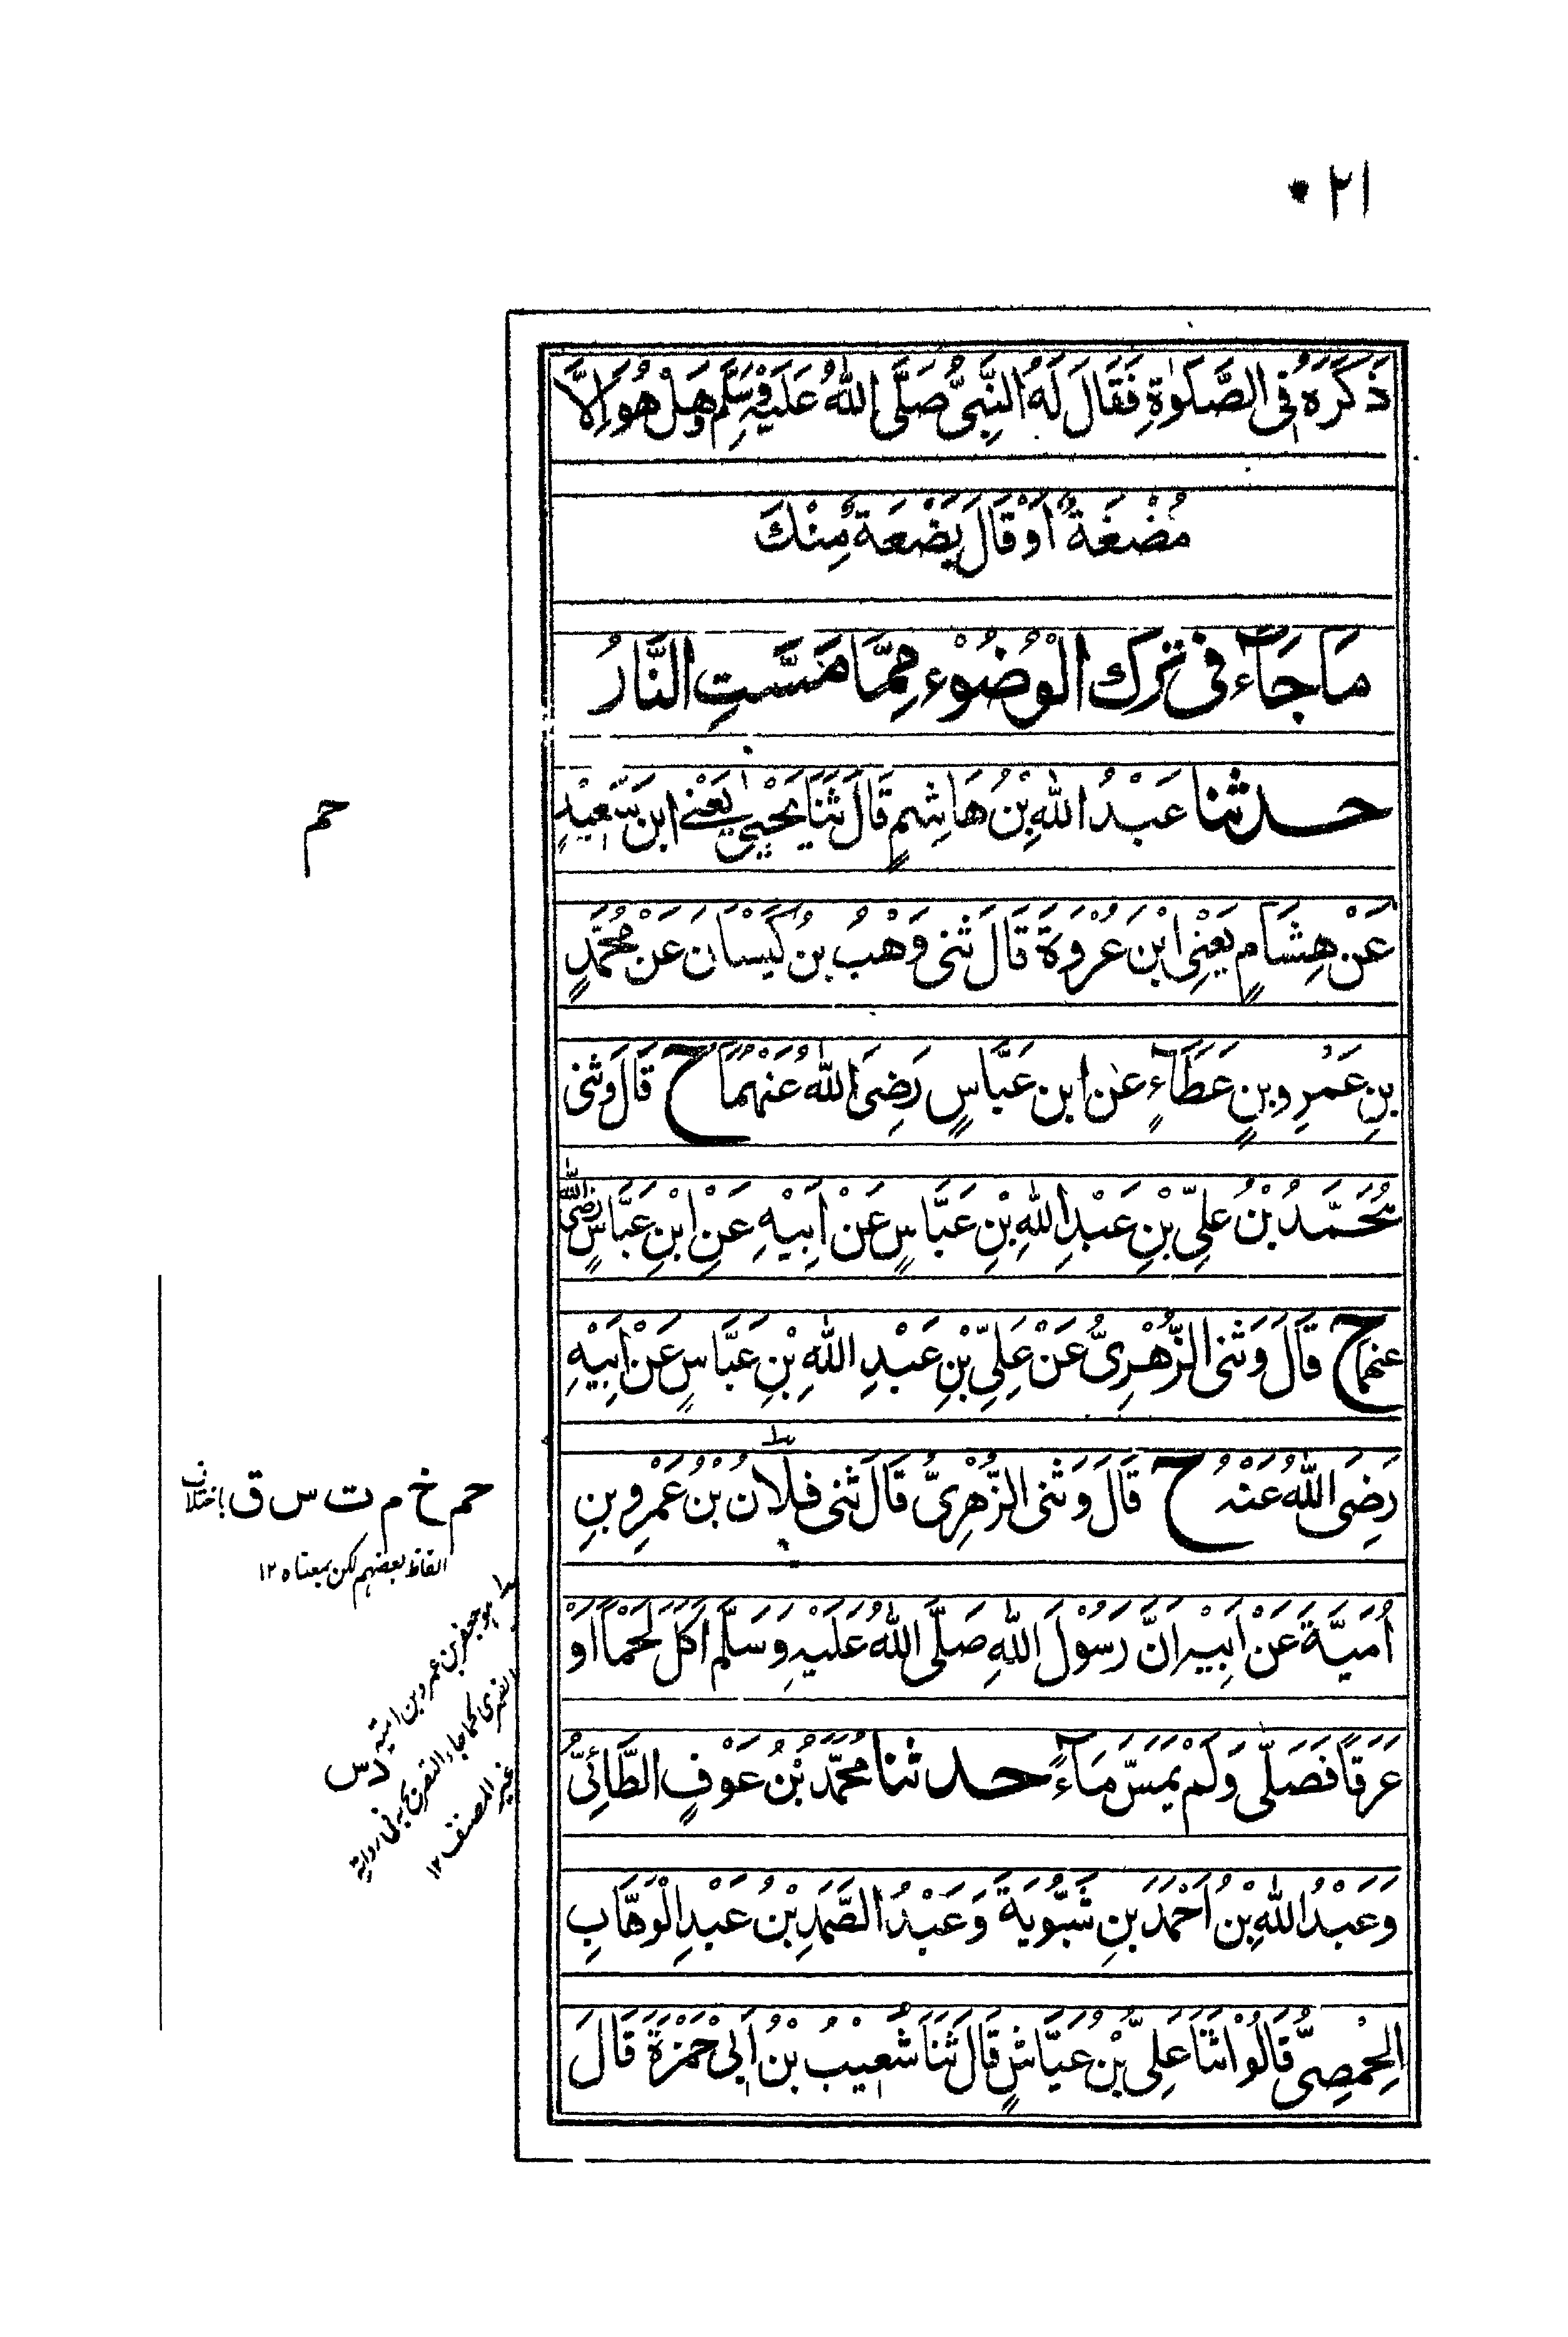 ٢١
ذَكَرَهُ فِى الصَّلٰوةِ فَقَالَ لَهُ النَّبِىُّ صَلَّى اللّٰهُ عَلَيْهِ وَسَلَّمَ وَهَلْ هُوَ اِلَّا
مُضْغَةٌ اَوْ قَالَ بَضْعَةٌ مِنْكَ
مَا جَآءَ فِى تَرْكِ الْوُضُوْءِ مِمَّا مَسَّتِ النَّارُ
حدثنا عَبْدُ اللّٰهِ بْنُ هَاشِمٍ قَالَ ثَنَا يَحْيٰى يَعْنِے ابْنَ سَعِيْدٍ
عَنْ هِشَامٍ يَعْنِى ابْنَ عُرْوَةَ قَالَ ثَنِى وَهْبُ بْنُ كَيْسَانَ عَنْ مُحَمَّدٍ
بْنِ عَمْرِو بْنِ عَطَآءٍ عَنِ ابْنِ عَبَّاسٍ رَضِىَ اللّٰهُ عَنْهُمَا ح قَالَ وَثَنِى
مُحَمَّدُ بْنُ عَلِىِّ بْنِ عَبْدِ اللّٰهِ بْنِ عَبَّاسٍ عَنْ اَبِيْهِ عَنِ ابْنِ عَبَّاسٍ رَضِىَ اللّٰهُ
عنهما ح قَالَ وَثَنِى الزُّهْرِىُّ عَنْ عَلِىِّ بْنِ عَبْدِ اللّٰهِ بْنِ عَبَّاسٍ عَنْ اَبِيْهِ
رَضِىَ اللّٰهُ عَنْهُ ح قَالَ وَثَنِى الزُّهْرِىُّ قَالَ ثَنِى فُلَانُ بْنُ عَمْرِو بْنِ
اُمَيَّةَ عَنْ اَبِيْهِ اَنَّ رَسُوْلَ اللّٰهِ صَلَّى اللّٰهُ عَلَيْهِ وَسَلَّمَ اَكَلَ لَحْمًا اَوْ
عَرَقًا فَصَلّٰى وَلَمْ يَمَسَّ مَآءً حدثنا مُحَمَّدُ بْنُ عَوْفٍ الطَّائِىُّ
وَعَبْدُ اللّٰهِ بْنُ اَحْمَدَ بْنِ شَبُّوْيَةَ وَعَبْدُ الصَّمَدِ بْنُ عَبْدِ الْوَهَّابِ
الْحِمْصِىُّ قَالُوْا ثَنَا عَلِىُّ بْنُ عَيَّاشٍ قَالَ ثَنَا شُعَيْبُ بْنُ اَبِىْ حَمْزَةَ قَالَ
حم
حم خ م ت س ق باختلاف
الفاظ بعضهم لكن بمعناه ١٢
ابو جعفر بن عمرو بن امية
الضمرى كما جاء التصريح به فى رواية
غير المصنف ١٢
د س